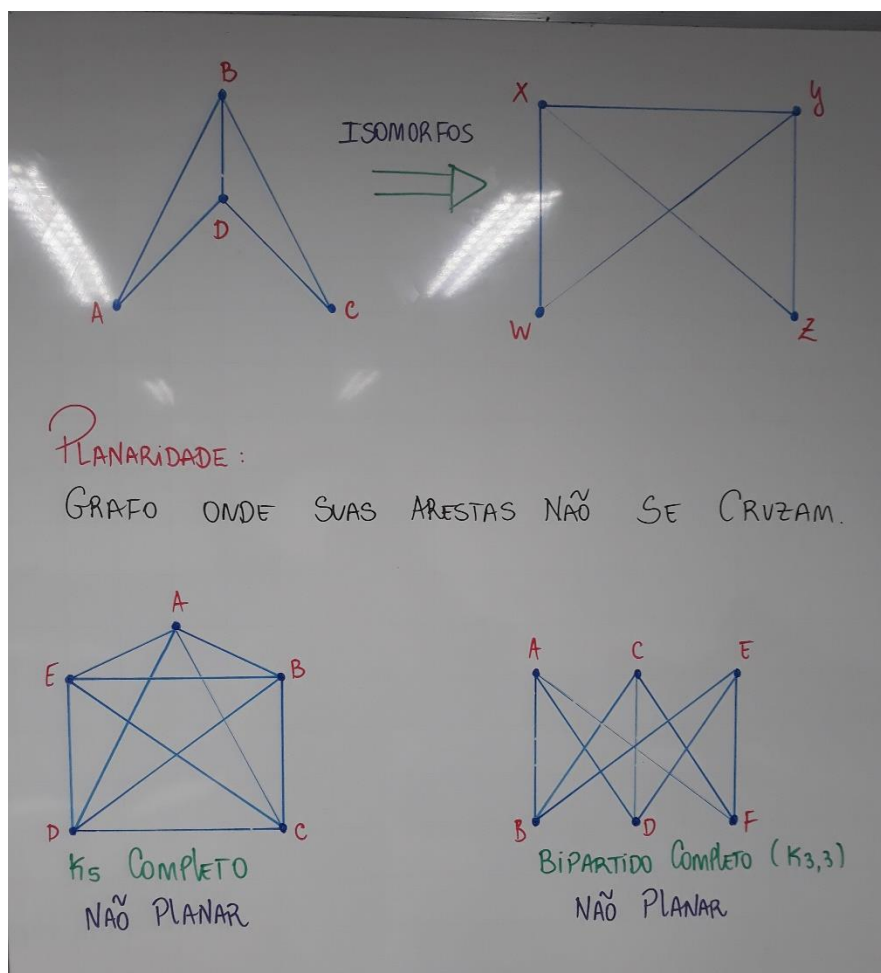 B
X
Y
ISOMORFOS
D
A
C
W
Z
PLANARIDADE:
GRAFO ONDE SUAS ARESTAS NÃO SE CRUZAM.
A
E
B
D
C
K5 COMPLETO
NÃO PLANAR
A C E
B D F
BIPARTIDO COMPLETO (K3,3)
NÃO PLANAR